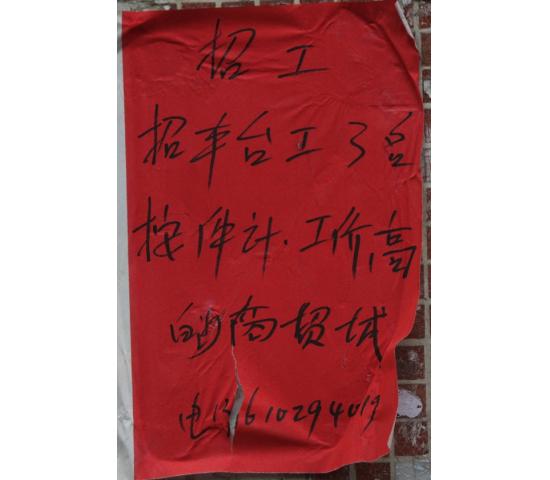 招工
招车台工3名
按件计.工价高
白沙商贸城
电13610294019